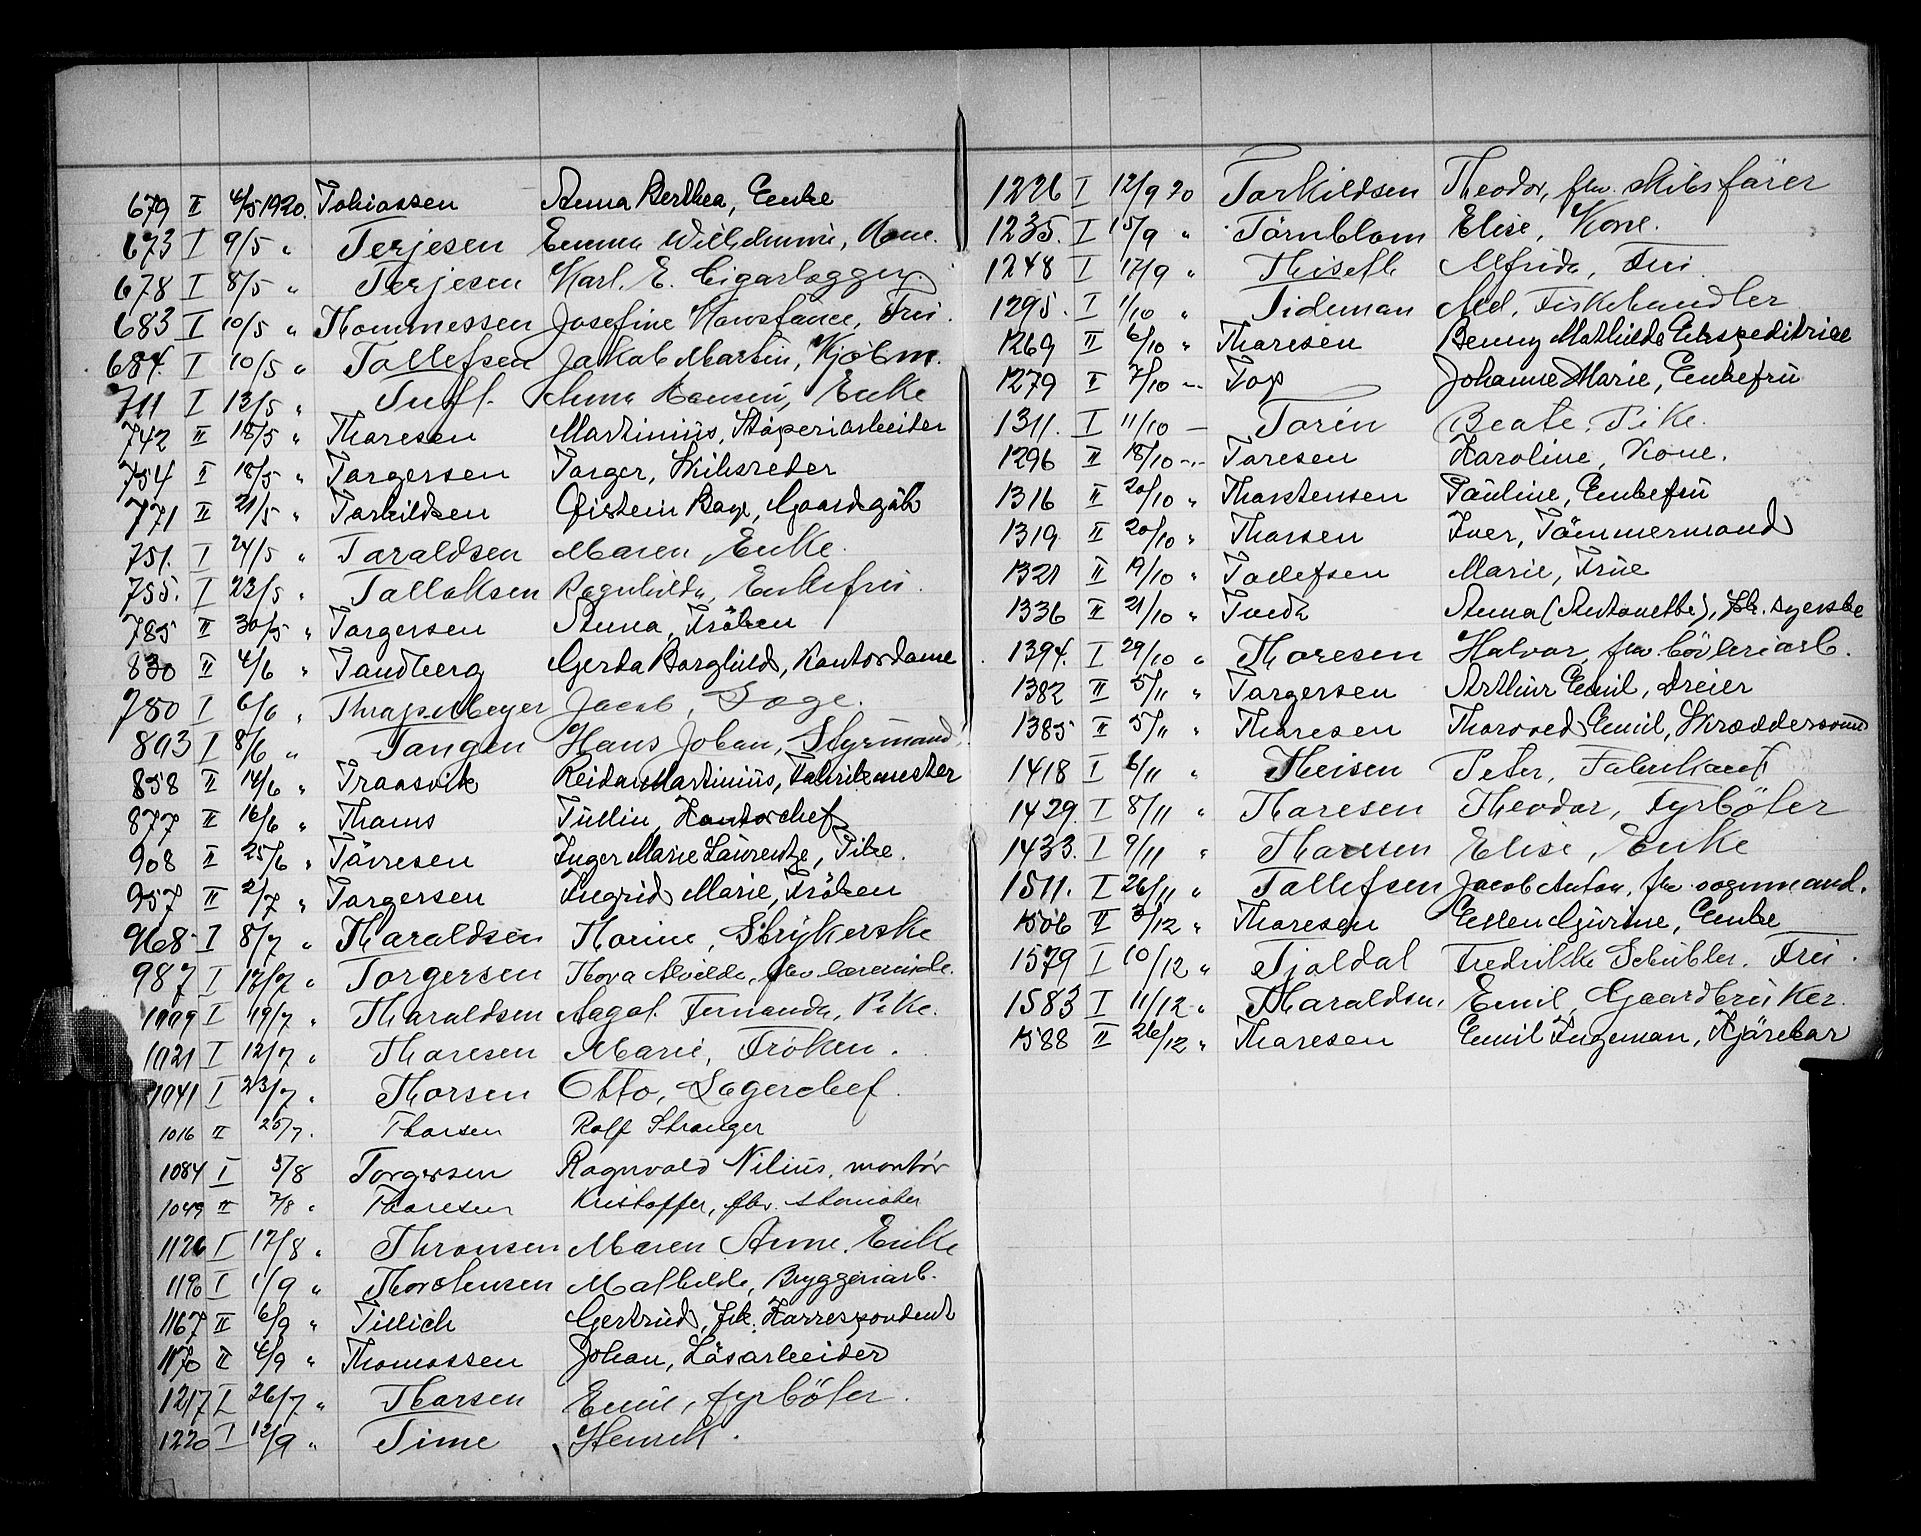 679 II 4/5 1920. Tobiassen Anna Berthea, Enke
673 I 9/5 " Terjesen Emma Wilhelmine, Kone.
678 I 8/5 " Terjesen Karl. E. Cigarlægger.
683 I 10/5 " Thommessen Josefine Konstance, Fru.
684. I 10/5 " Tallefsen Jakob Martin, Kjøbm.
711 I 13/5 " Tufl. Anna Hansen, Enke
742 II 18/5 " Thoresen Martinius, Støperiarbeider
754 II 18/5 " Torgersen Torger, Skibsreder
771 II 21/5 " Torkildsen Øistein Gaardsgüt
751. I 24/5 " Taraldsen Maren, Enke.
755. I 23/5 " Tallaksen Ragnhilda, Enkefru.
785 II 30/5 " Torgersen Anna, Fröken
830 II 4/6 " Tandberg Gerda Borghild, Kontordame
780 I 6/6 " Thrap-Meyer Jacob, Loge.
893 I 8/6 " Tangen Hans Johan, Styrmand,
858 II 14/6 " Traasvik Reidar Martinius, Fabrikmester
877 II 16/6 " Thams Tüllin, Kontorchef
908 II 25/6 " Tönesen Inger Marie Laurentze, Pike.
957 II 2/7 " Torgersen Ingrid Marie, Fröken
968 I 8/7 " Tharaldsen Thorine, Strykerske
987 I 12/7 " Torgersen Thora Alvilde, fhv lærerinde.
1009 I 19/7 " Tharaldsen Aagot Fernanda, Pike.
1021 I 12/7 " Thoresen Marie, Frøken.
1041 I 23/7 " Thorsen Otto, Lagerchef.
1016 II 25/7. Thorsen Rolf Stranger
1084 I 5/8 Torgersen Ragnvald Nilius, montör
1049 II 7/8 " Thoresen Kristoffer, fhv.
1126 I 17/8 " Thronsen Maren Anne. Enke
1190 I 1/9 " Thorstensen Mathilde, Bryggeriarb.
1167 II 6/9 " Tillich Gertrud, frk. Korrespondent
1170 II 4/9 " Thomassen Johan, Lösarbeider
1217 I 26/7 " Thorsen Emil, fyrböter.
1220 I 12/9 " Time Henrik.
1226 I 12/9 20 Torkildsen Theodor, fhv. skibsförer
1235. I 15/9 " Törnblom Elise, Kone.
1248 I 17/9 " Thiseth Alfrida, Fru.
1295. I 1/10 " Tideman Ald, Fiskehandler
1269 II 6/10 " Thoresen Benny Mathilde Ekspeditrice
1279 II 7/10 -"- Top Johanne Marie, Enkefrü
1311. I 11/10 — Torin Beate, Pike.
1296 II 18/10 -"- Toresen Karoline, Kone.
1316 II 20/10 " Thorstensen Pauline, Enkefrü
1319 II 20/10 " Thorsen Iver, Tömmermand
1321 II 19/10 " Tollefsen Marie, Früe
1336 II 21/10 " Tvedt Anna (Antonette), frk. syerske
1394. I 29/10 " Thoresen Halvor, fhv. høvleriarb.
1382 II 5/11 " Torgersen Arthur Emil, Dreier
1385 II 5/11 " Thoresen Thorvald Emil, Skræddersvend
1418 I 6/11 " Theisen Peter, Fabrikant
1429. I 8/11 " Thoresen Theodor, Fyrböter
1433. I 9/11 " Thoresen Elise, Enke
1511. I 26/11 " Tollefsen Jacob Anton, fhv. vognmand.
1506 II 3/12 " Thoresen Ellen Gurine, Enke
1579 I 10/12 " Tjoldal Fredrikke Schübler, Fru.
1583 I 11/12 " Tharaldsen, Emil, Gaardbruker.
1588 II 26/12 " Thoresen Emil Ingeman, Kjörekar